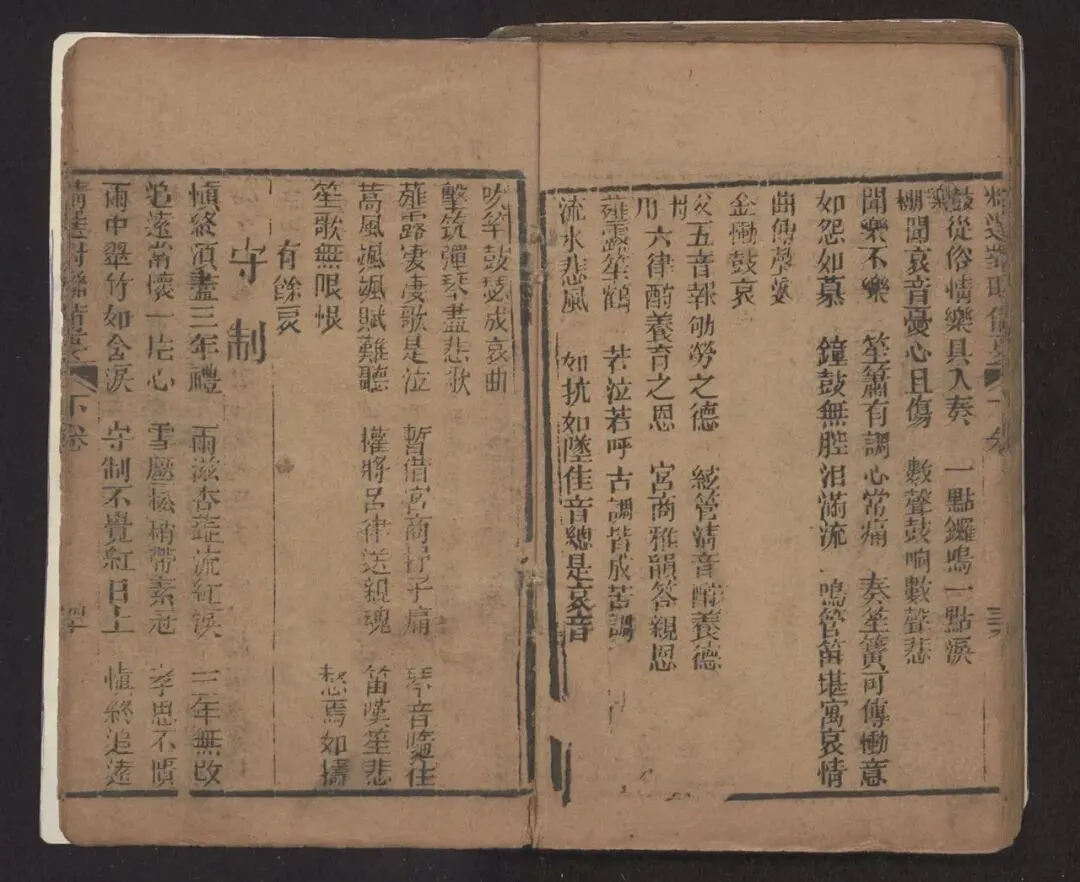 鼓從俗情樂具入奏　一點鑼鳴一點淚
棚聞哀音憂心且傷　數聲鼓响數聲悲
聞樂不樂　笙簫有調心常痛　奏笙簧可傳慟意
如怨如慕　鐘鼓無腔泪滿流　鳴管笛堪寓哀情
曲傳琴
金慟鼓哀
五音報劬勞之德　絃管清音酧養德
用六律酌養育之恩　宮商雅韻答親恩
薤露笙鶴　若泣若呼古調皆成苦調
流水悲風　如抗如墜佳音總是哀音
吹竽鼓瑟成哀曲
擊筑彈琴盡悲歌
薤露凄凄歌是泣　暫借宮商　子　琴音　往
蒿風颯颯賦難聽　權將呂律送親魂　笛嘆笙悲
笙歌無限恨　愁焉如擣
有餘哀
守制
慎終須盡三年禮　雨滋杏　流紅淚　三年無改
追遠常懷一片心　雪壓松梢帶素冠　孝思不慣
雨中翠竹如含淚　守制不覺紅日上　慎終追遠
下卷